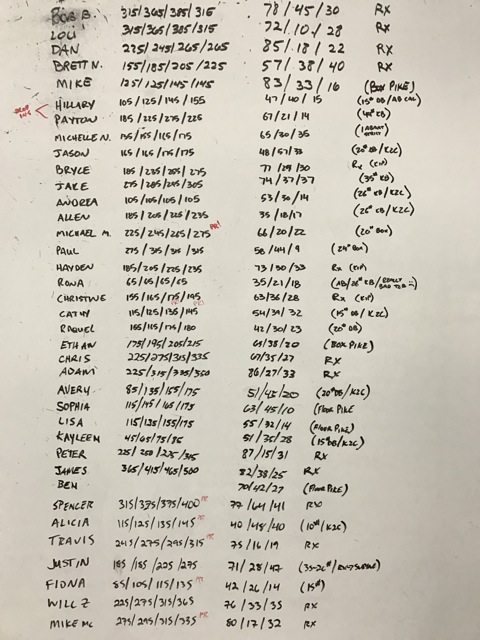 BOB B. 315/365/385/315 78/45/30 RX
LOU 315/365/385/315 72/10/28 RX
DAN 225/245/265/265 85/18/22 RX
BRETT N. 155/185/205/225 57/38/40 RX
MIKE 125/125/145/145 83/33/16 (BOX PIKE)
HILLARY 105/125/145/155 47/40/15
PAYTON 185/225/275/225 67/21/14
MICHELLE N. 135/155/165/175 65/30/35
JASON 165/165/175/175 48/57/33 (20# KB/K2C)
BRYCE 185/235/205/275 77/29/30 RX (KIP)
JAKE 275/285/245/305 74/37/37 (35# KB)
ANDREA 105/105/105/105 53/30/14 (26# KB/K2C)
ALLEN 185/205/225/235 35/18/17 (26# KB/K2C)
MICHAEL M. 225/245/265/275 PR! 66/20/22 (20" BOX)
PAUL 275/315/315/315 58/44/9 (24" BOX)
HAYDEN 185/205/225/235 73/30/33 RX (KIP)
RONA 65/65/65/65 35/21/18
CHRISTINE 155/165/175/195 63/36/28 RX (KIP)
CATHY 115/125/135/145 54/39/32 (15# DB/K2C)
RAQUEL 165/115/175/180 42/30/23 (20# DB)
ETHAN 175/195/205/215 69/38/20 (BOX PIKE)
CHRIS 225/275/315/335 67/35/27 RX
ADAM 225/315/335/350 86/27/33 RX
AVERY 85/135/155/175 51/45/20 (20# DB/K2C)
SOPHIA 115/145/165/175 63/45/10 (FLOOR PIKE
LISA 115/135/155/175 55/32/14 (FLOOR PIKE)
KAYLEEN 45/65/75/85 51/35/28 (15# DB/K2C)
PETER 225/250/275/315 87/15/31 RX
JAMES 365/415/465/500 82/38/25 RX
BEN 70/42/27 (FLOOR PIKE)
SPENCER 315/335/375/400 PR 77/64/41 RX
ALICIA 115/125/135/145 PR 40/48/40 (10#/K2C)
TRAVIS 245/275/295/315 PR 75/16/19 RX
JUSTIN 185/185/225/275 71/28/47
FIONA 85/105/115/135 PR 42/26/14 (15#)
WILL Z 225/275/315/365 76/33/35 RX
MIKE MC 275/295/315/335 PR 80/17/32 RX